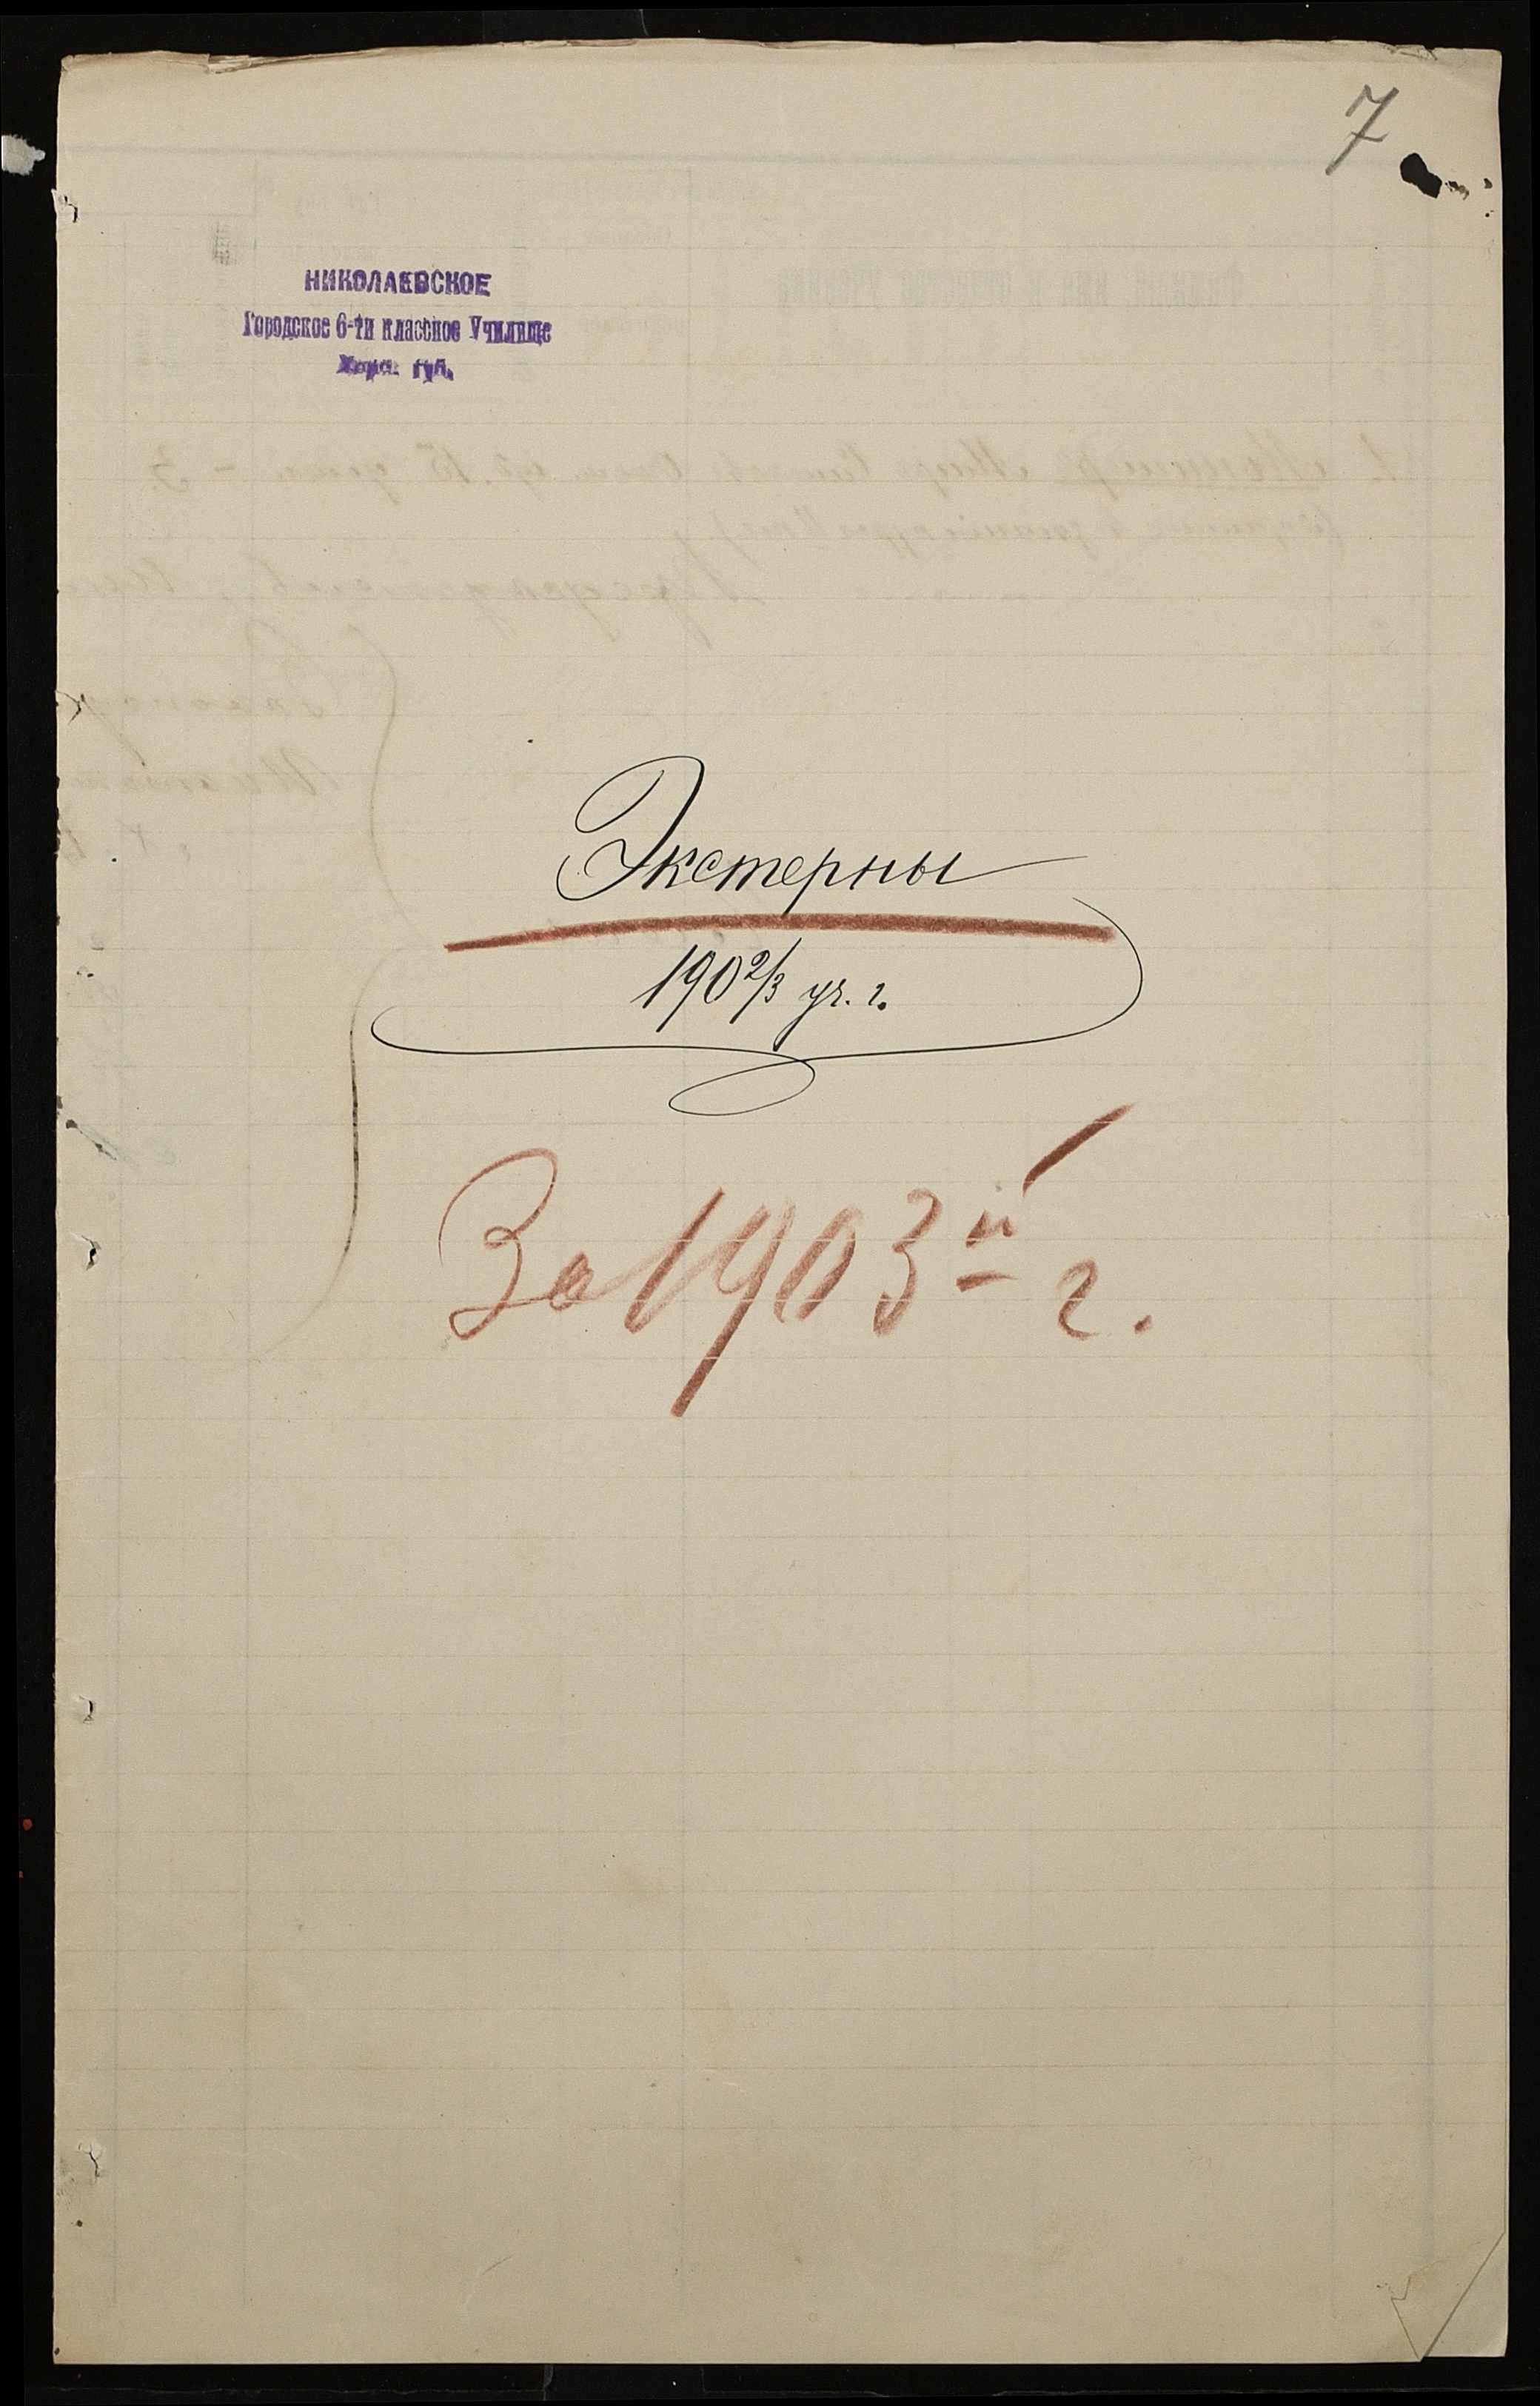 7
НИКОЛАЕВСКОЕ
Городское 6-ти классное Училище
Херс. губ.
Экстерны
190 2/3 уч. г.
За 1903 й г.